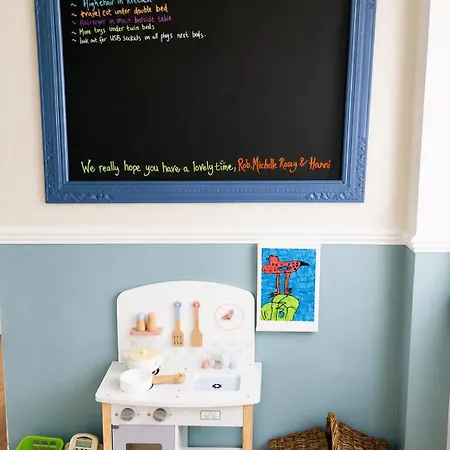 ~ Highchair in kitchen
~ travel cot under double bed
~ Hairdryer in main bedside table
~ More toys under twin beds
~ look out for USB sockets on all plugs next beds.
We really hope you have a lovely time, Rob, Michelle Rosey & Hanni